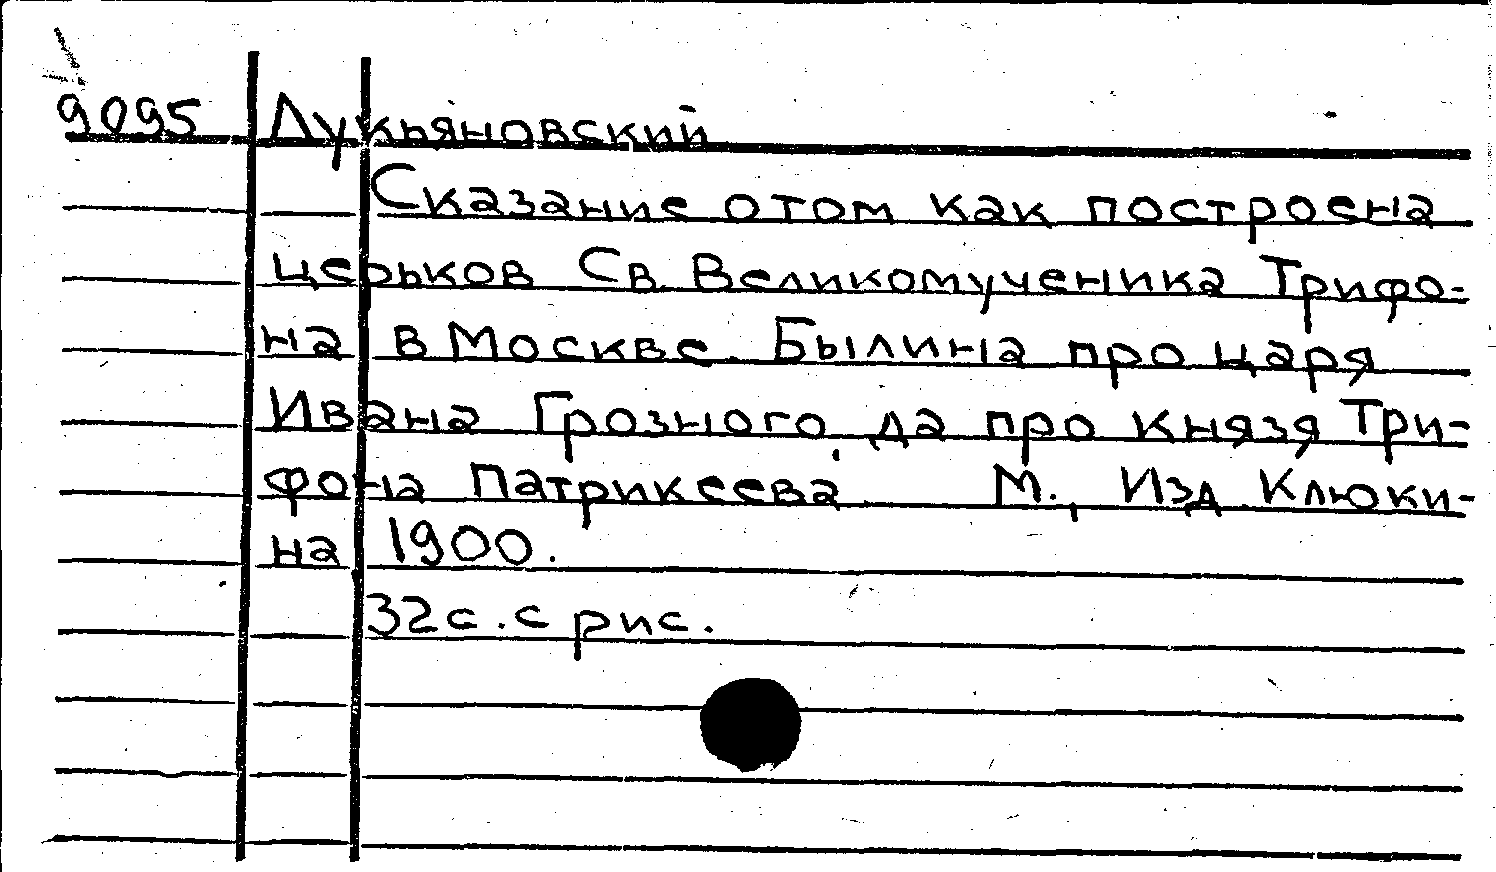 9095 Лукьяновский
Сказание о том как построена
церьков Св. Великомученика Трифо-
на в Москве. Былина про царя
Ивана Грозного да про князя Три-
фона Патрикеева. М., Изд. Клюки-
на 1900.
32с. с рис.